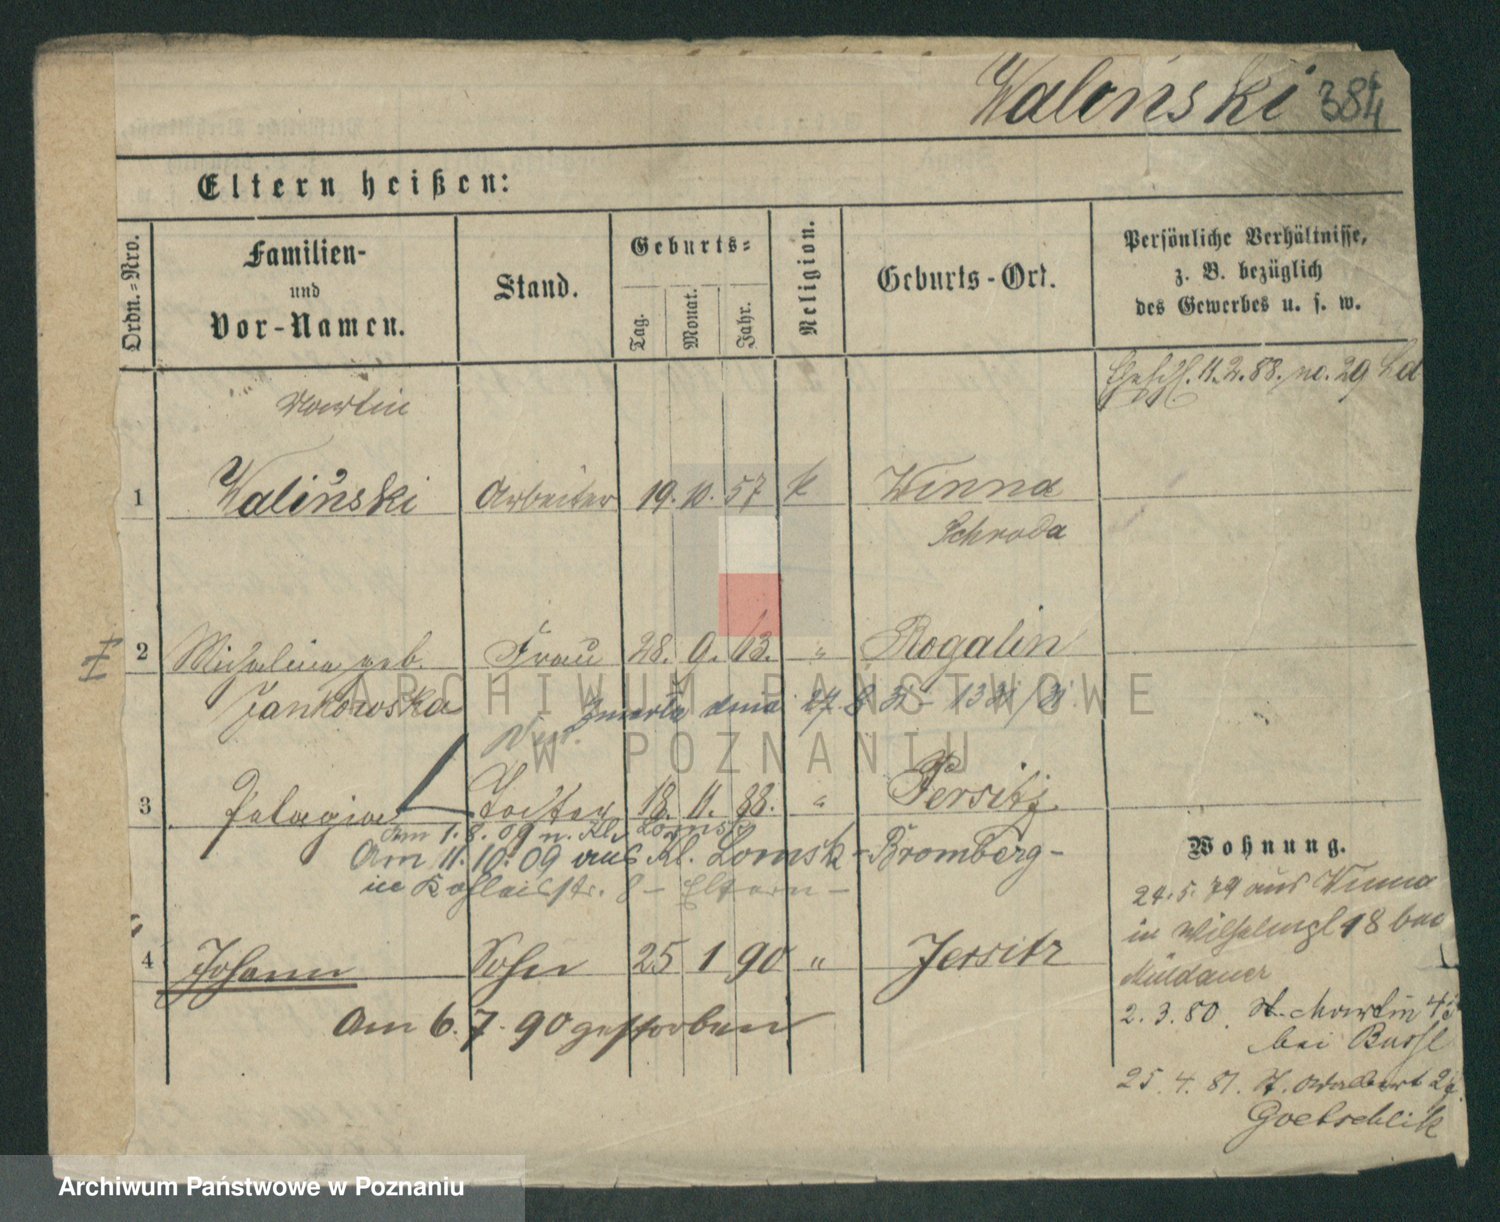 Waliński 384
Eltern heißen:
Ordn.-Nro.
Familien-
und
Vor-Namen.
Stand.
Geburts-
Tag.
Monat.
Jahr.
Religion.
Geburts-Ort.
Persönliche Verhältnisse,
z. B. bezüglich
des Gewerbes u. s. w.
11. 2. 88. no. 29
Martin
1 Waliński Arbeiter 19. 10. 57 k Winna
Schroda
2 Michalina geb. Frau 28. 9. 63. " Rogalin
Jankowska
Zmarła dnia 27. 8. 31
3 Pelagia Tochter 18. 11. 88. " Jersitz
Am 1. 8. 09 n. Kl. Lomsk
Am 11. 10. 09 aus Kl. Lomsk - Bromberg -
in str. 8 - Eltern -
4 Johann Sohn 25 1 90 " Jersitz
Am 6. 7. 90 gestorben
Wohnung.
24. 5. 79 aus Winna
in 18 bei
Müldauer
2. 3. 80. St. Martin
bei
25. 4. 81. St. Adalbert
Goetschlik
ARCHIWUM PAŃSTWOWE
W POZNANIU
Archiwum Państwowe w Poznaniu